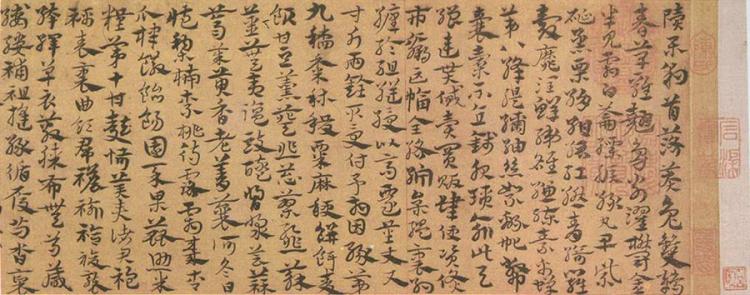 豹首落莫兔雙鶴
春草雞翹鳧翁濯鬱金
半見霜白籥縹綟綠丸皁紫
硟烝栗絹紺縉紅繎青綺羅
縠靡潤鮮綈絡縑練素帛蟬
第八絳緹絓紬絲絮綿
囊橐不直錢服瑣緰此與
繒連貰貸賣買販肆便資貨
市贏匹幅全絡紵枲縕裹約
纏綸組縌綬以高遷量丈尺
寸斤兩銓取受付予相因緣第
九稻黍秫稷粟麻秔餅餌麥
飯甘豆羹葵韭蔥蓼韰蘇
薑蕪荑鹽豉醯酢醬芸蒜
薺芥茱萸香老菁蘘荷冬日
藏梨柿柰桃待露霜棗杏
瓜棣饊飴餳園菜果蓏助米
糧第十甘麩恬美奏諸君袍
襦表裏曲領帬襜褕袷複褶
襌衣蔽膝布無尊箴
縷補袒縫緣循履舄沓裒